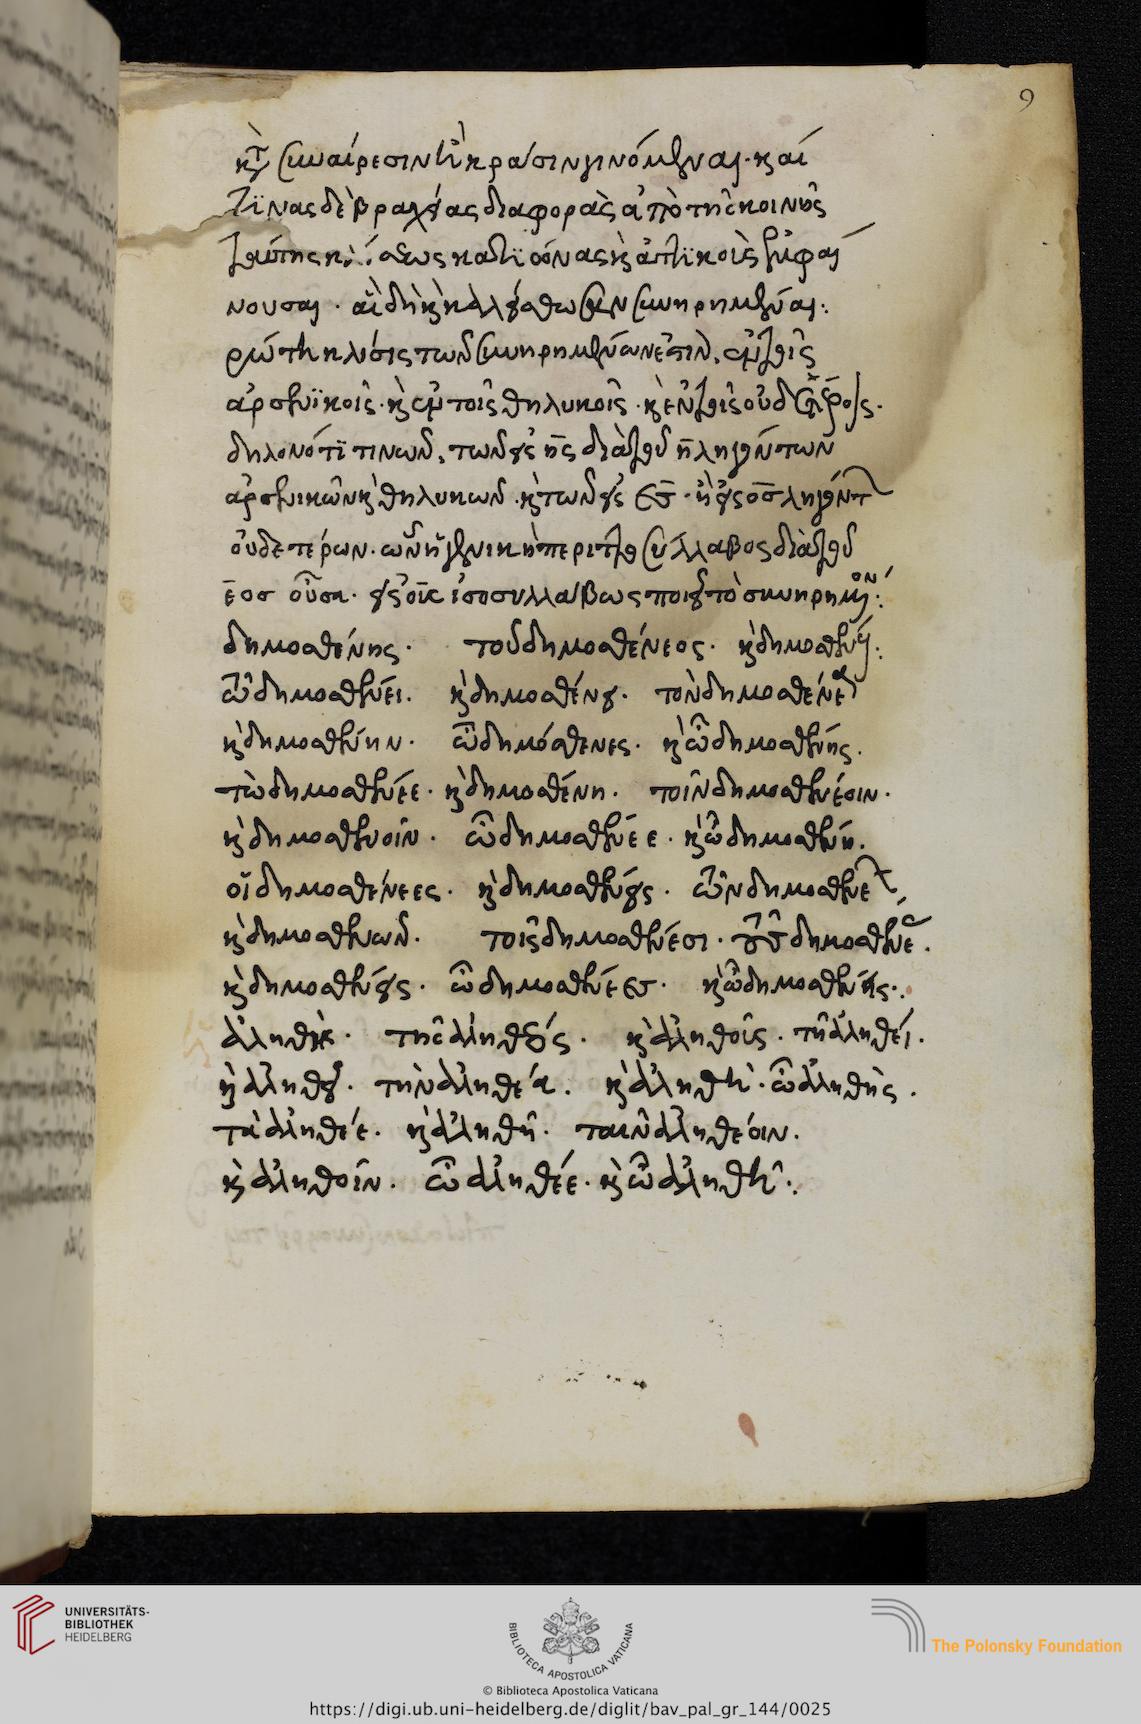 9
κατὰ συναίρεσιν ἢ κρᾶσιν γινόμεναι. καί
τϊνας δὲ βραχείας διαφορὰς ἀπὸ τῆς κοινῆς
ταύτης καὶ ἀττϊκοῖς ἐμφαί
νουσαι. αἳ δὴ καὶ καλείσθωσαν συνηρημέναι:
ρώτη κλίσις τῶν συνηρημένων ἐστὶν, ἐν τοῖς
ἀρσενϊκοῖς. καὶ ἐν τοῖς θηλυκοῖς. καὶ ἐν τοῖς οὐδετέροις.
δηλονότϊ τινῶν, τῶν εἰς ης διὰ τοῦ η ληγόντων
ἀρσενικῶν καὶ θηλυκῶν. καὶ τῶν εἰς ες. ἢ εἰς ος ληγόντων
οὐδετέρων. ὧν ἡ γενικὴ περιττοσύλλαβος διὰ τοῦ
εος οὖσα. εἰς ους ἰσοσυλλάβως ποιεῖ τὸ συνηρημένον:
δημοσθένης. τοῦ δημοσθένεος. καὶ δημοσθένους:
τῶ δημοσθένεϊ. καὶ δημοσθένει. τὸν δημοσθένεα
καὶ δημοσθένην. ὦ δημόσθενες. καὶ ὦ δημοσθένης.
τὼ δημοσθένεε. καὶ δημοσθένη. τοῖν δημοσθενέοιν.
καὶ δημοσθενοῖν. ὦ δημοσθένεε. καὶ ὦ δημοσθένη.
οἱ δημοσθένεες. καὶ δημοσθένεις. τῶν δημοσθενέων
καὶ δημοσθενῶν. τοῖς δημοσθένεσι. τοὺς δημοσθένεας.
καὶ δημοσθένεις. ὦ δημοσθένεες. καὶ ὦ δημοσθένεις:
ἀληθὴς. τῆς ἀληθέος. καὶ ἀληθοῦς. τῆ ἀληθέϊ.
καὶ ἀληθεῖ. τὴν ἀληθέα. καὶ ἀληθῆ. ὦ ἀληθὴς.
τὰ ἀληθέε. καὶ ἀληθῆ. ταιν ἀληθέοιν.
καὶ ἀληθοῖν. ὦ ἀληθέε. καὶ ὦ ἀληθῆ:
UNIVERSITÄTS-
BIBLIOTHEK
HEIDELBERG
BIBLIOTECA APOSTOLICA VATICANA
The Polonsky Foundation
© Biblioteca Apostolica Vaticana
https://digi.ub.uni-heidelberg.de/diglit/bav_pal_gr_144/0025